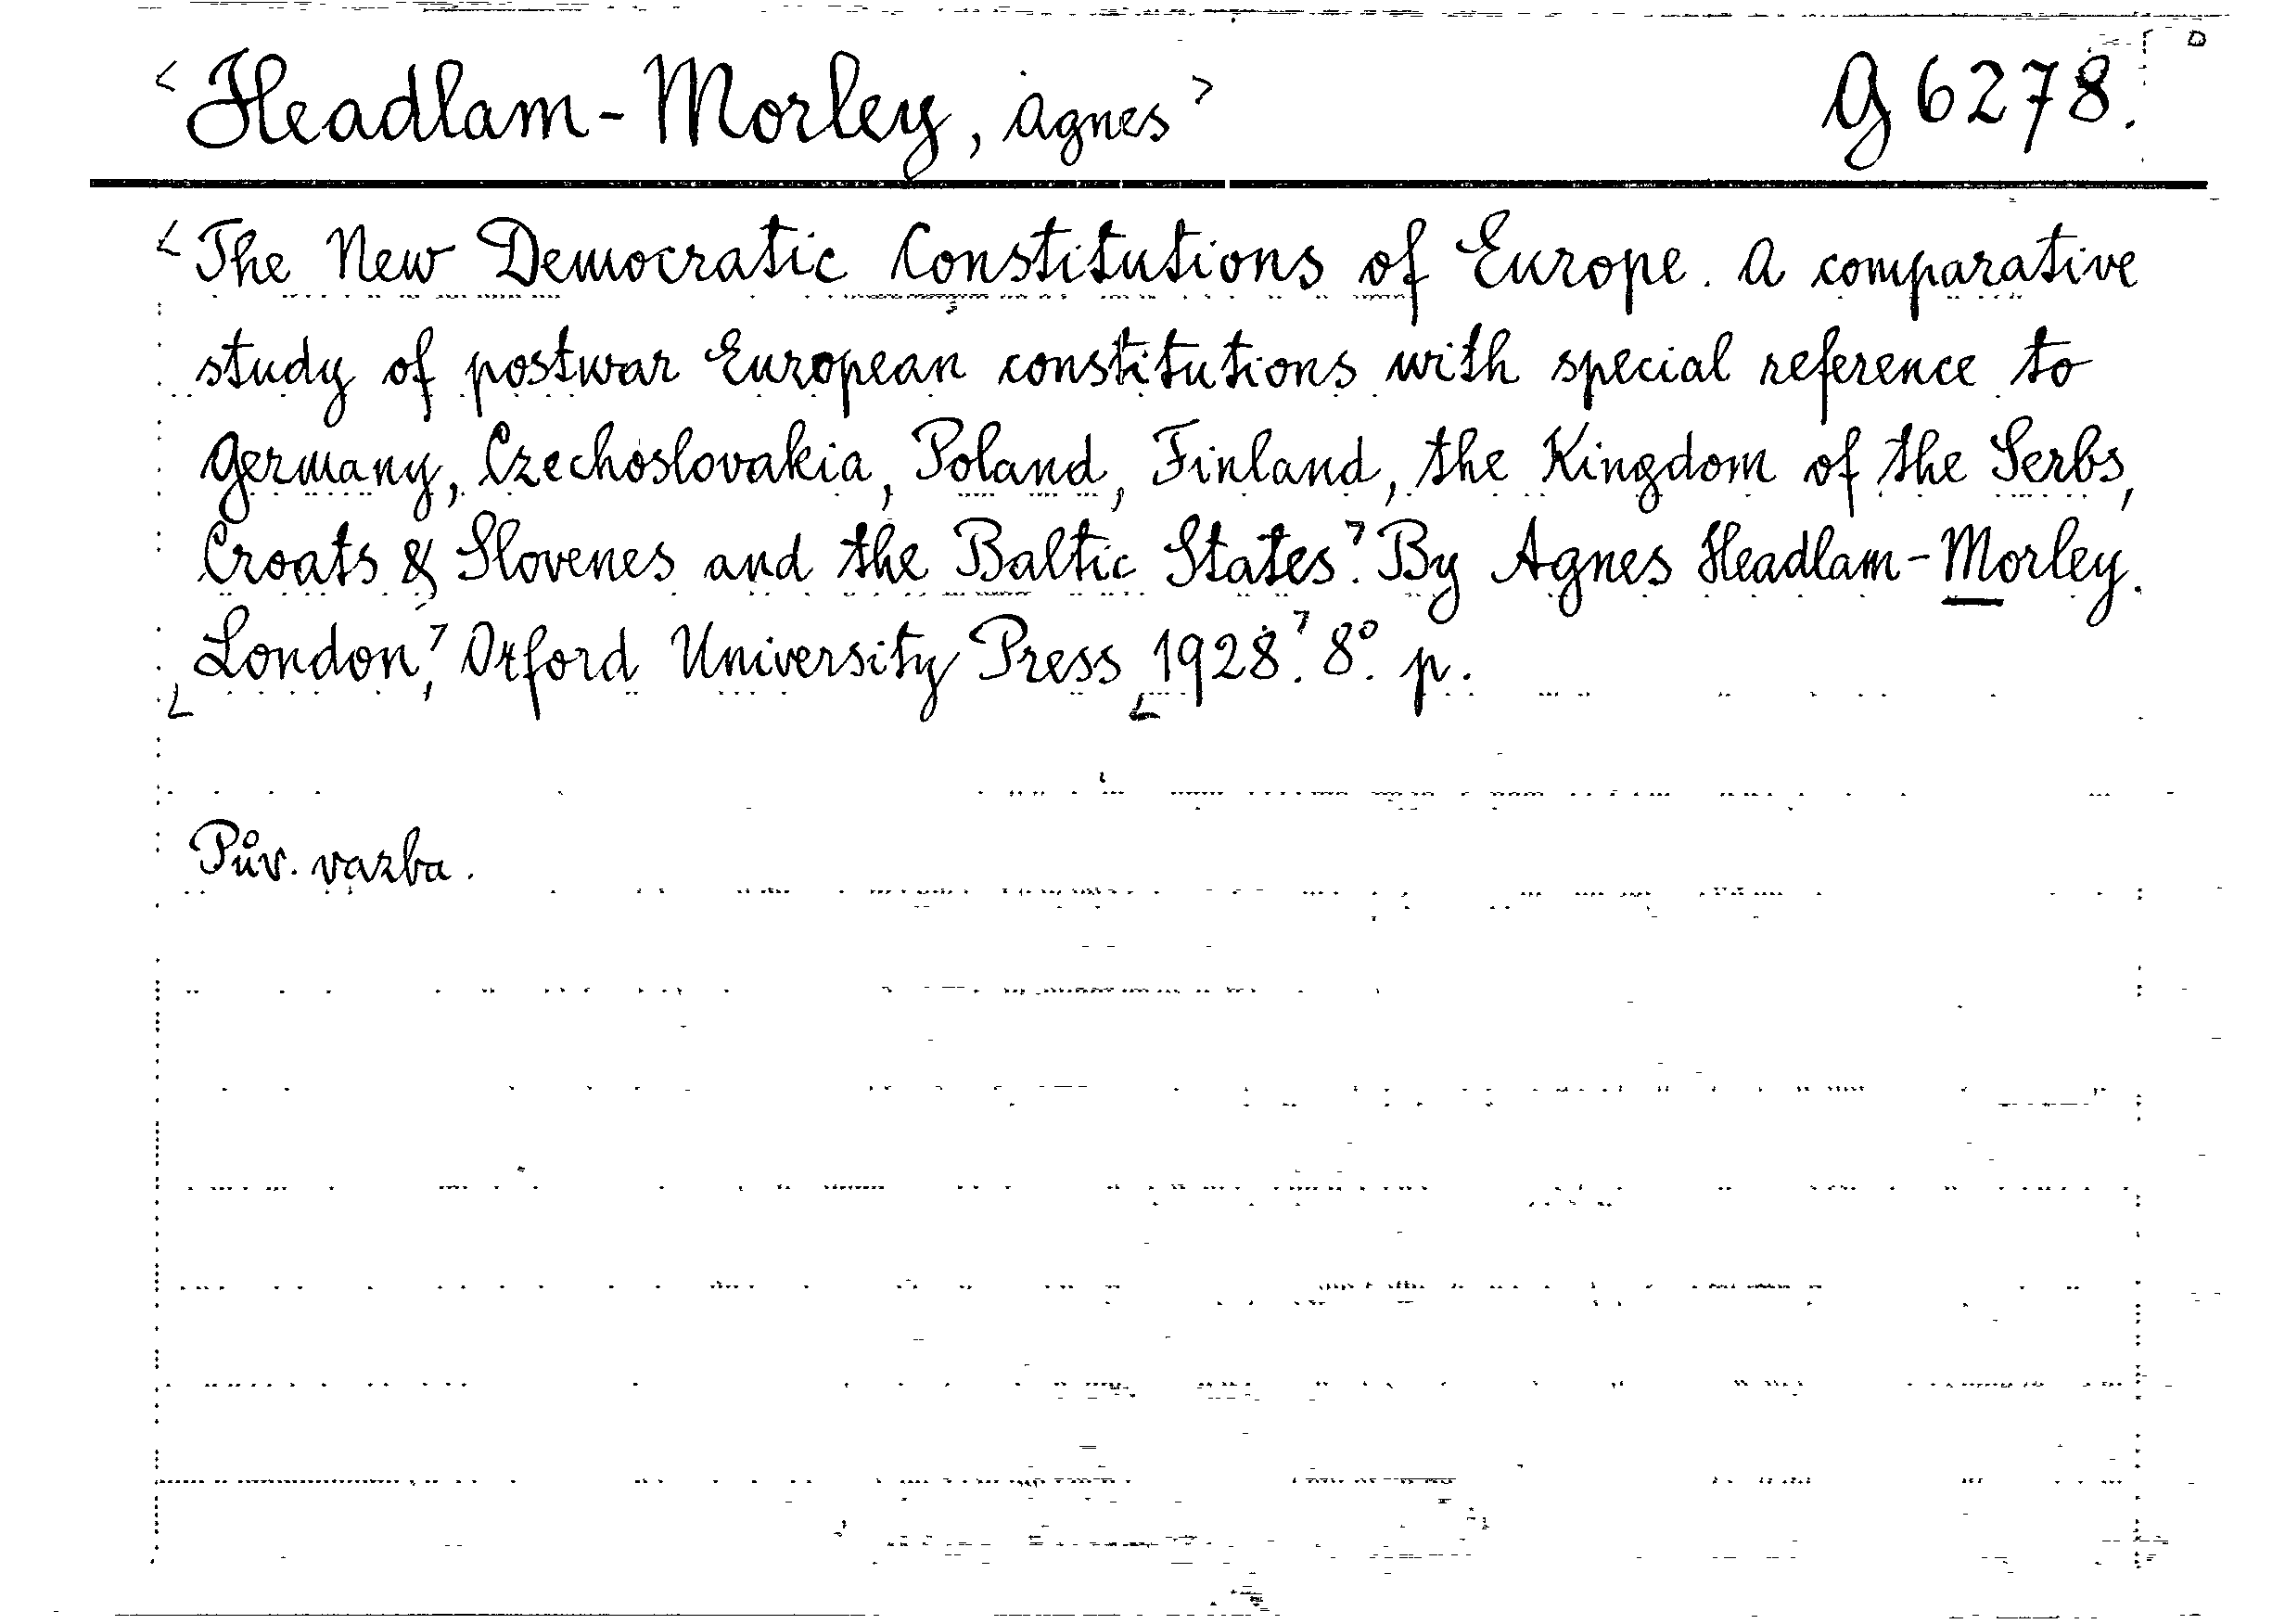 Headlam-Morley, Agnes G 6278.
The New Democratic Constitutions of Europe. A comparative
study of postwar European constitutions with special reference to
Germany, Czechoslovakia, Poland, Finland, the Kingdom of the Serbs,
Croats & Slovenes and the Baltic States. By Agnes Headlam-Morley.
London, Oxford University Press 1928. 8°. p.
Pův. vazba.